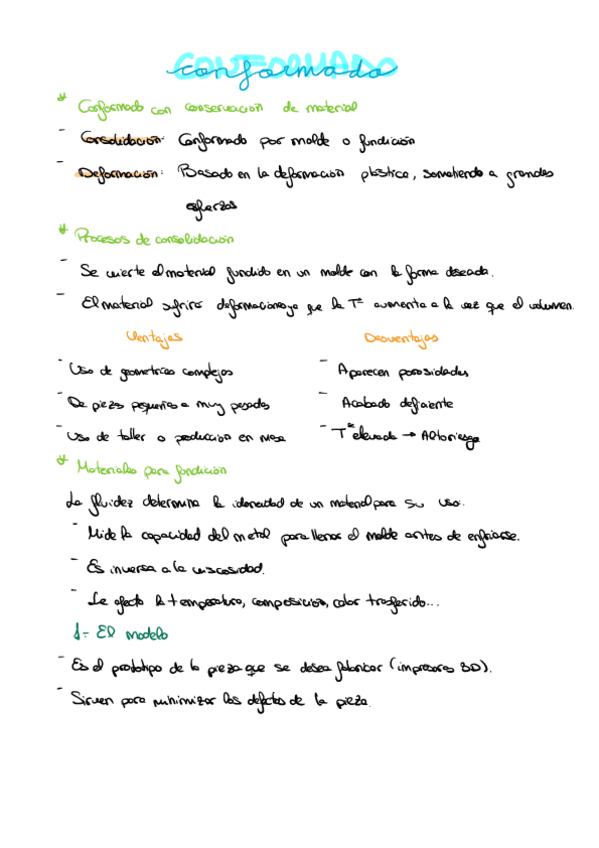 CONFORMADO
conformado
* Conformado con conservación de material
- Consolidación: Conformado por molde o fundición
- Deformación: Basado en la deformación plástica, sometiendo a grandes
esfuerzos
* Procesos de consolidación
- Se vierte el material fundido en un molde con la forma deseada.
- El material sufrirá deformaciones ya que la Tª aumenta a la vez que el volumen.
Ventajas Desventajas
- Uso de geometrías complejas - Aparecen porosidades
- De piezas pequeñas a muy pesadas - Acabado deficiente
- Uso de taller o producción en masa - Tª elevada → Alto riesgo
* Materiales para fundición
La fluidez determina la idoneidad de un material para su uso.
- Mide la capacidad del metal para llenar el molde antes de enfriarse.
- Es inversa a la viscosidad.
- Le afecta la temperatura, composición, calor trasferido...
1- El modelo
- Es el prototipo de la pieza que se desea fabricar (impresoras 3D).
- Sirven para minimizar los defectos de la pieza.